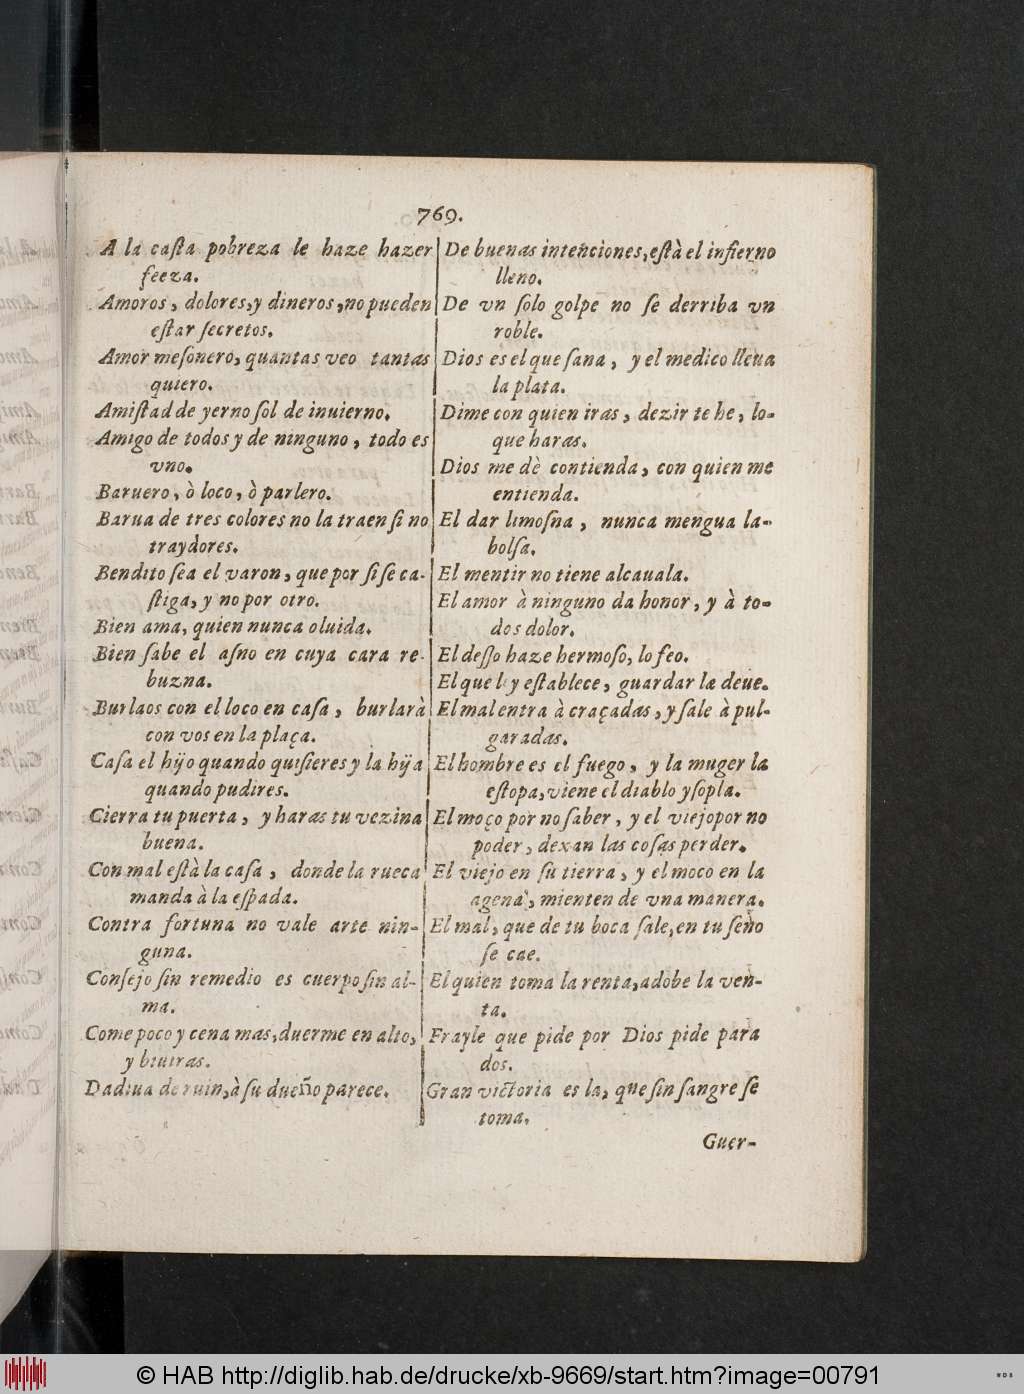 769.
A la caſta pobreza le haze hazer
feeza.
Amoros, dolores, y dineros, no pueden
eſtar ſecretos.
Amor meſonero, quantas veo tantas
quiero.
Amiſtad de yerno ſol de inuierno.
Amigo de todos y de ninguno, todo es
vno.
Baruero, ò loco, ò parlero.
Barua de tres colores no la traen ſi no
traydores.
Bendito ſea el varon, que por ſi ſe ca-
ſtiga, y no por otro.
Bien ama, quien nunca oluida.
Bien ſabe el aſno en cuya cara re-
buzna.
Burlaos con el loco en caſa, burlarà
con vos en la plaça.
Caſa el hijo quando quiſieres y la hija
quando pudires.
Cierra tu puerta, y haras tu vezina
buena.
Con mal eſtà la caſa, donde la rueca
manda à la eſpada.
Contra fortuna no vale arte nin-
guna.
Conſejo ſin remedio es cuerpo ſin al-
ma.
Come poco y cena mas, duerme en alto,
y biuiras.
Dadiua de ruin, à ſu dueño parece.
De buenas intenciones, eſtà el infierno
lleno.
De vn ſolo golpe no ſe derriba vn
roble.
Dios es el que ſana, y el medico lleua
la plata.
Dime con quien iras, dezir te he, lo-
que haras.
Dios me dè contienda, con quien me
entienda.
El dar limoſna, nunca mengua la-
bolſa.
El mentir no tiene alcauala.
El amor à ninguno da honor, y à to-
dos dolor.
El deſſo haze hermoſo, lo feo.
El que ley eſtablece, guardar læ deue.
El mal entra à craçadas, y ſale à pul-
garadas.
El hombre es el fuego, y la muger la
eſtopa, viene el diablo y ſopla.
El moço por no ſaber, y el viejo por no
poder, dexan las coſas perder.
El viejo en ſu tierra, y el moco en la
agena, mienten de vna manera.
El mal, que de tu boca ſale, en tu ſeno
ſe cae.
El quien toma la renta, adobe la ven-
ta.
Frayle que pide por Dios pide para
dos.
Gran victoria es la, que ſin ſangre ſe
toma.
Guer-
© HAB http://diglib.hab.de/drucke/xb-9669/start.htm?image=00791